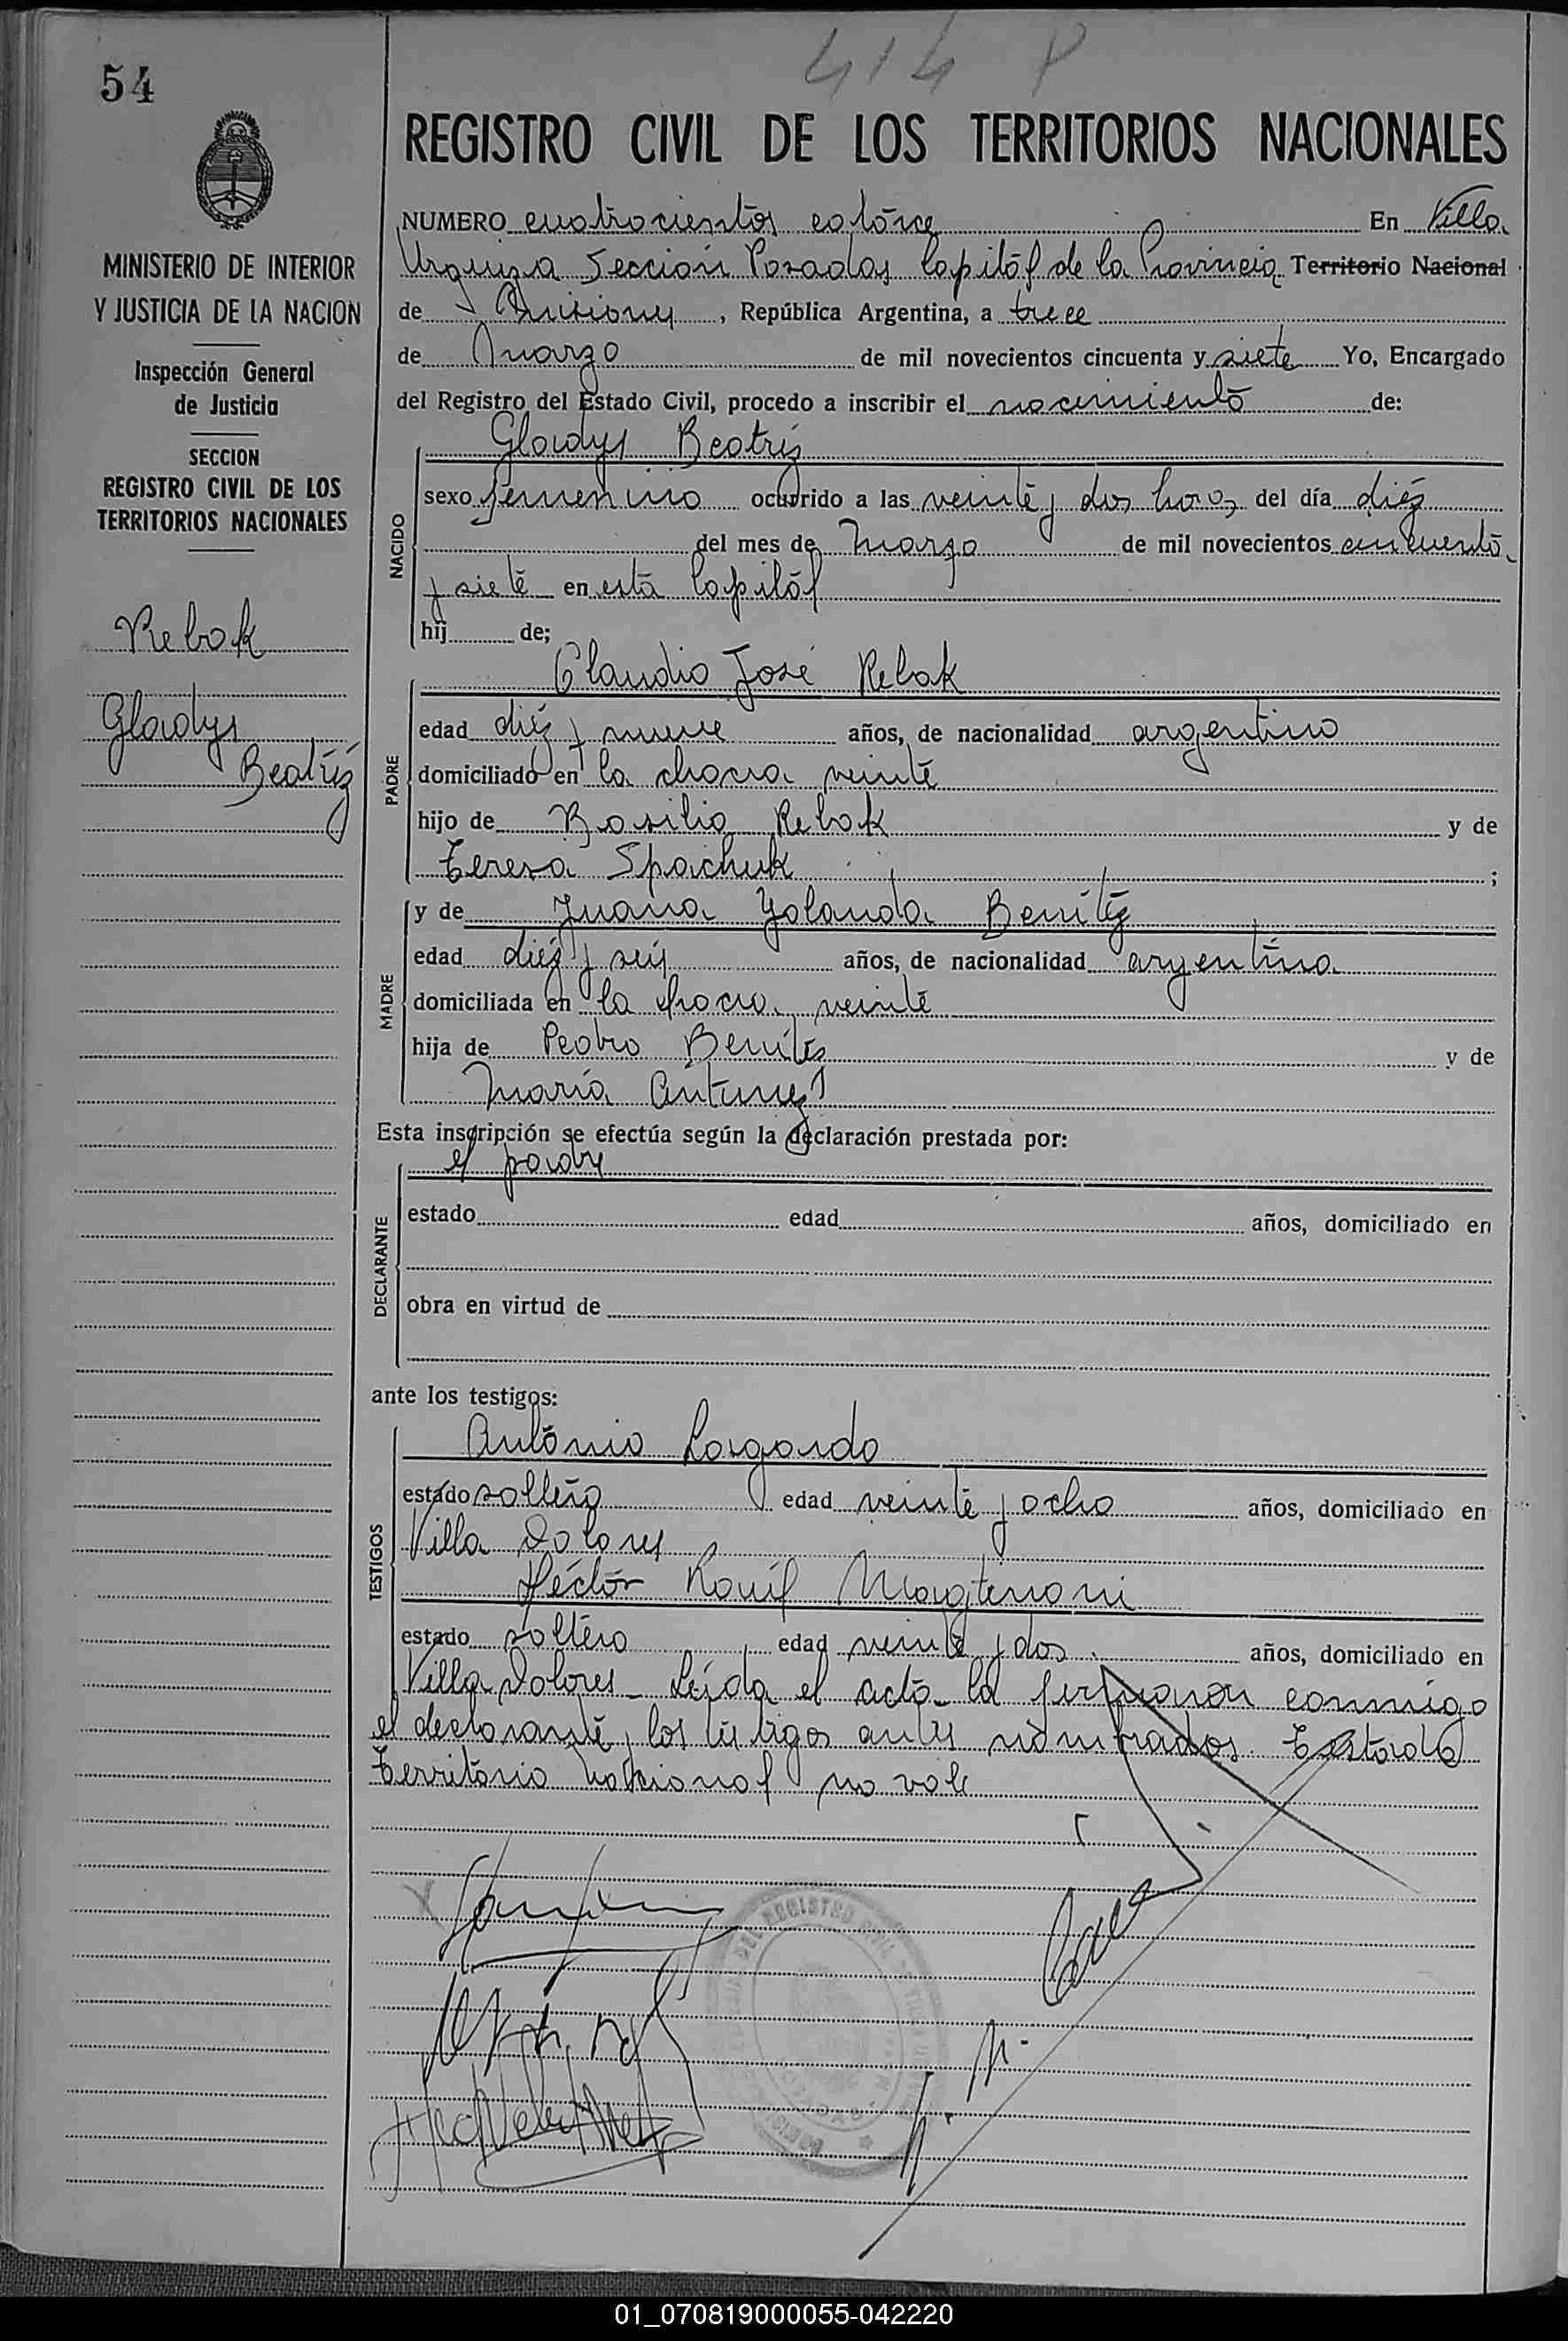 54
414 P
REGISTRO CIVIL DE LOS TERRITORIOS NACIONALES
MINISTERIO DE INTERIOR
Y JUSTICIA DE LA NACION
Inspección General
de Justicia
SECCION
REGISTRO CIVIL DE LOS
TERRITORIOS NACIONALES
Rebok
Gladys
Beatríz
NUMERO cuatrocientos catórce En Villa
Urquiza Sección Posadas Capitál de la Provincia Territorio Nacional
de Misiones, República Argentina, a trece
de Marzo de mil novecientos cincuenta y siete Yo, Encargado
del Registro del Estado Civil, procedo a inscribir el nacimiento de:
Gladys Beatriz
NACIDO
sexo femenino ocurrido a las veinte y dos horas del día diéz
del mes de Marzo de mil novecientos cincuenta
y siete en esta Capitál
hij de;
PADRE
Claudio José Rebok
edad diéz y nueve años, de nacionalidad argentino
domiciliado en la chacra veinte
hijo de Basilio Rebok y de
Teresa Spachuk ;
MADRE
y de Juana Yolanda Benítéz
edad diéz y seis años, de nacionalidad argentina
domiciliada en la chacra veinte
hija de Pedro Benites y de
María Antunez
Esta inscripción se efectúa según la declaración prestada por:
DECLARANTE
el padre
estado edad años, domiciliado en
obra en virtud de
ante los testigos:
TESTIGOS
Antonio Largardo
estado soltero edad veinte y ocho años, domiciliado en
Villa Dolores
Héctor Raúl
estado soltero edad veinte y dos años, domiciliado en
Villa Dolores - Leída el acta la firmaron conmigo
el declarante y los testigos antes nombrados. Testado
Territorio Nacional no vale
01_070819000055-042220